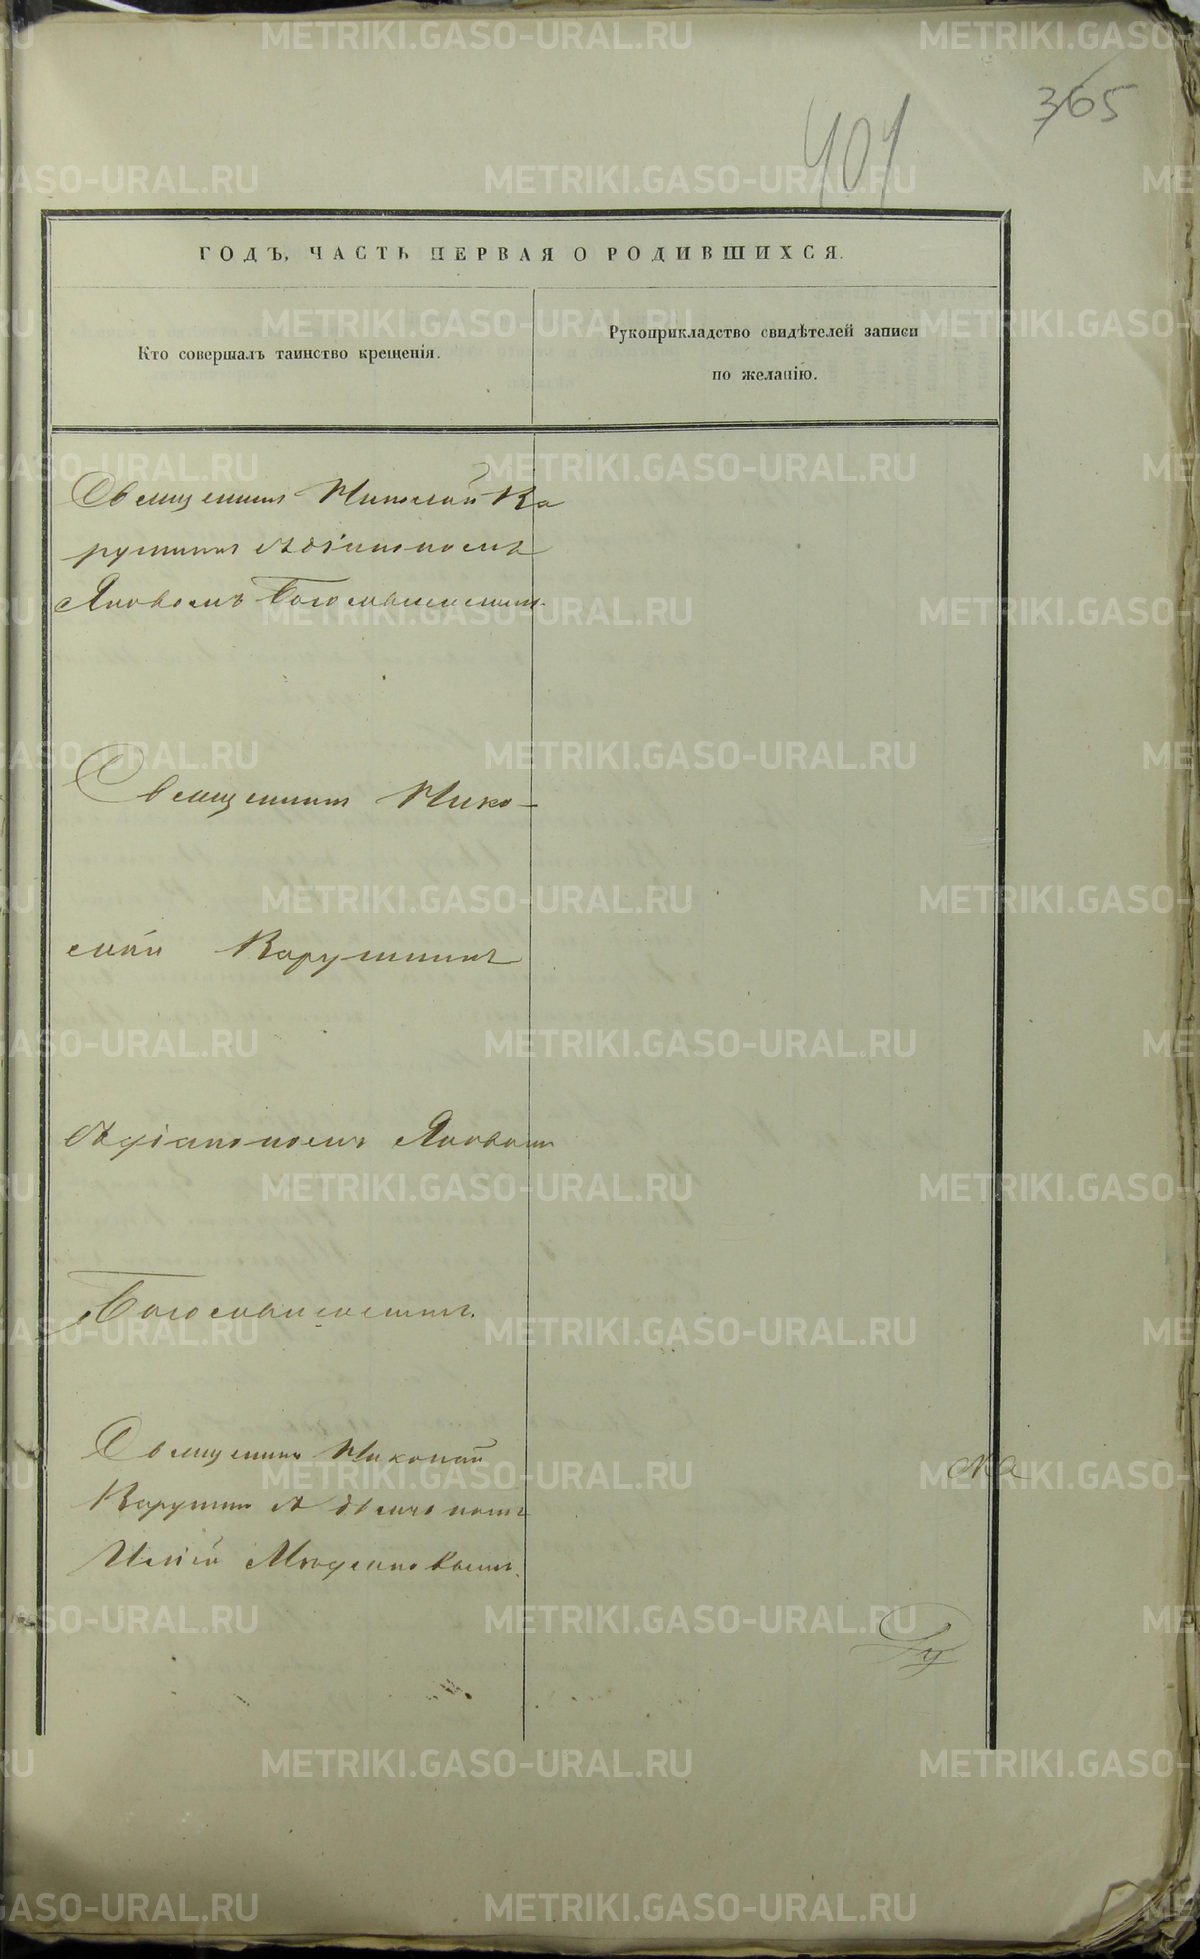 365
401
ГОДЪ, ЧАСТЬ ПЕРВАЯ О РОДИВШИХСЯ.
Кто совершалъ таинство крещенія.
Рукоприкладство свидѣтелей записи
по желанію.
Священникъ Николай Ка
рушинъ с діакономъ
Яковомъ Богословскимъ
Священникъ Нико-
лай Карушинъ
с діакономъ Яковомъ
Богословскимъ.
Священникъ Николай
Карушинъ с
METRIKI.GASO-URAL.RU